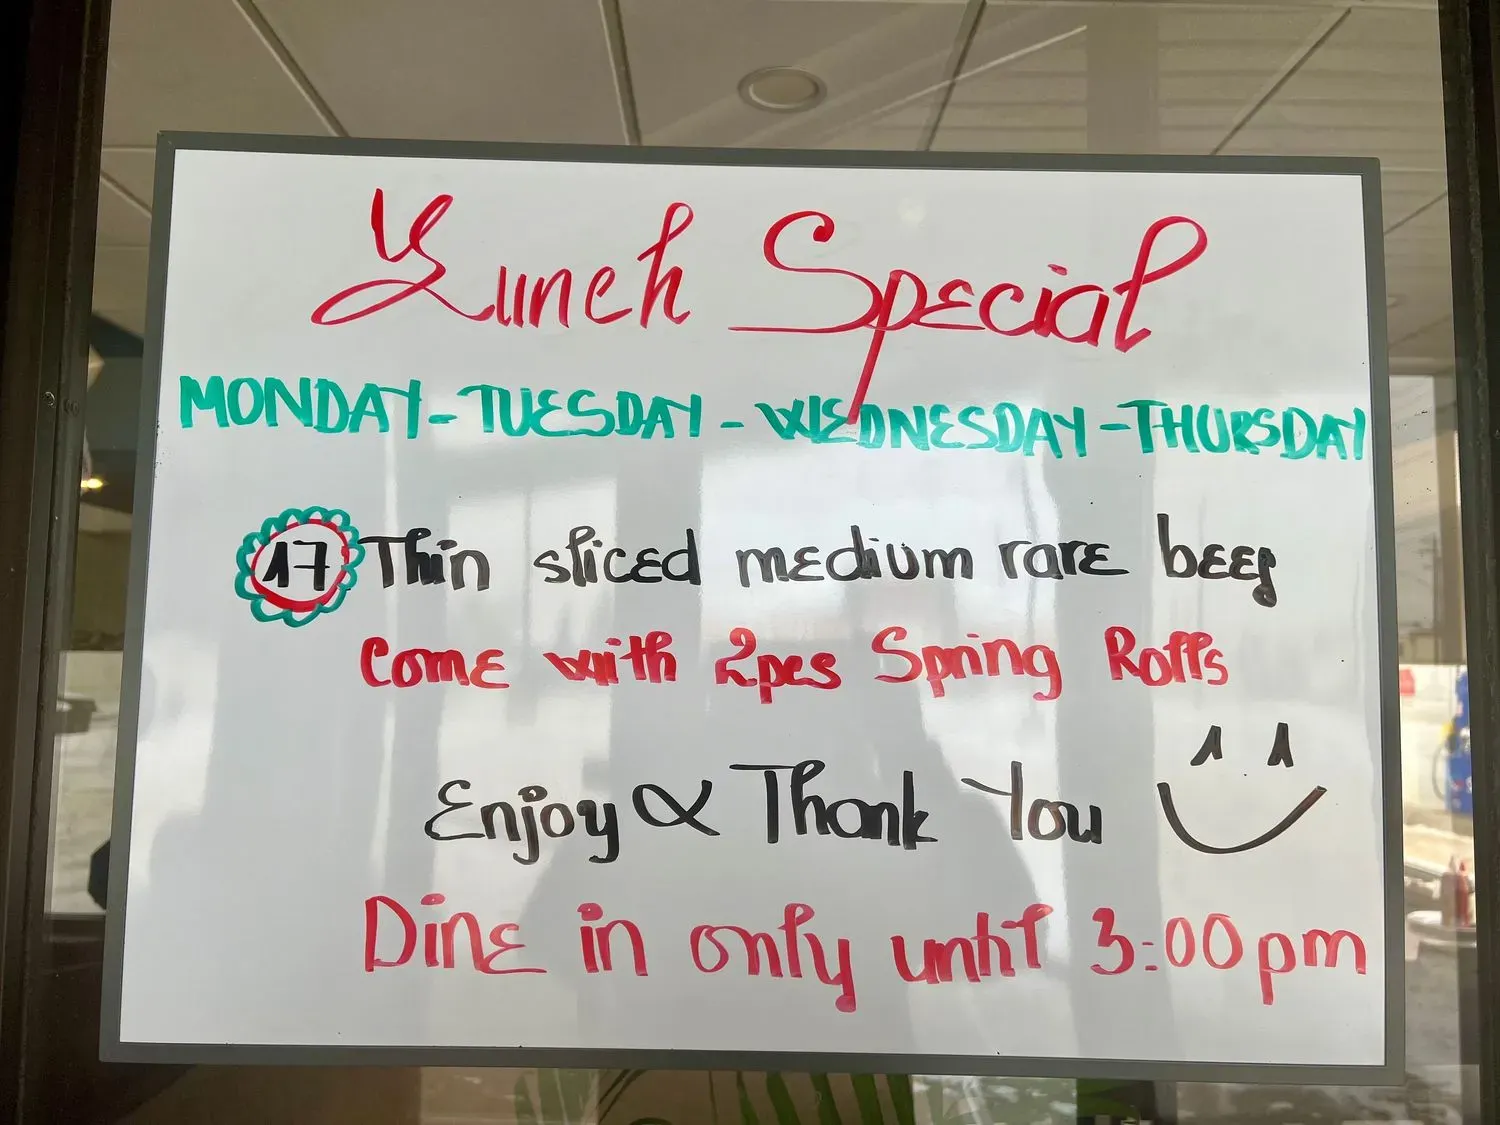 Lunch Special
MONDAY - TUESDAY - WEDNESDAY - THURSDAY
17 Thin sliced medium rare beef
Come with 2pcs Spring Rolls
Enjoy & Thank You
Dine in only until 3:00pm